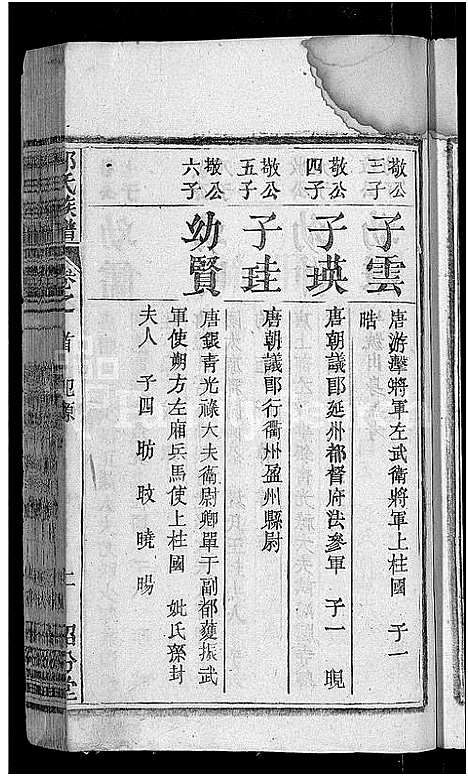 敬公三子
子雲
唐游擊將軍左武衛將軍上柱國 子一
晧
敬公四子
子瑛
唐朝議郎延州都督府法參軍 子一 晛
敬公五子
子珪
唐朝議郎行衢州盈州縣尉
敬公六子
幼賢
唐銀青光祿大夫衛尉卿單于副都護振武
軍使朔方左廂兵馬使上柱國 妣氏孫封
夫人 子四 昉 旼 曉 暘
氏族譜
卷之首
堂